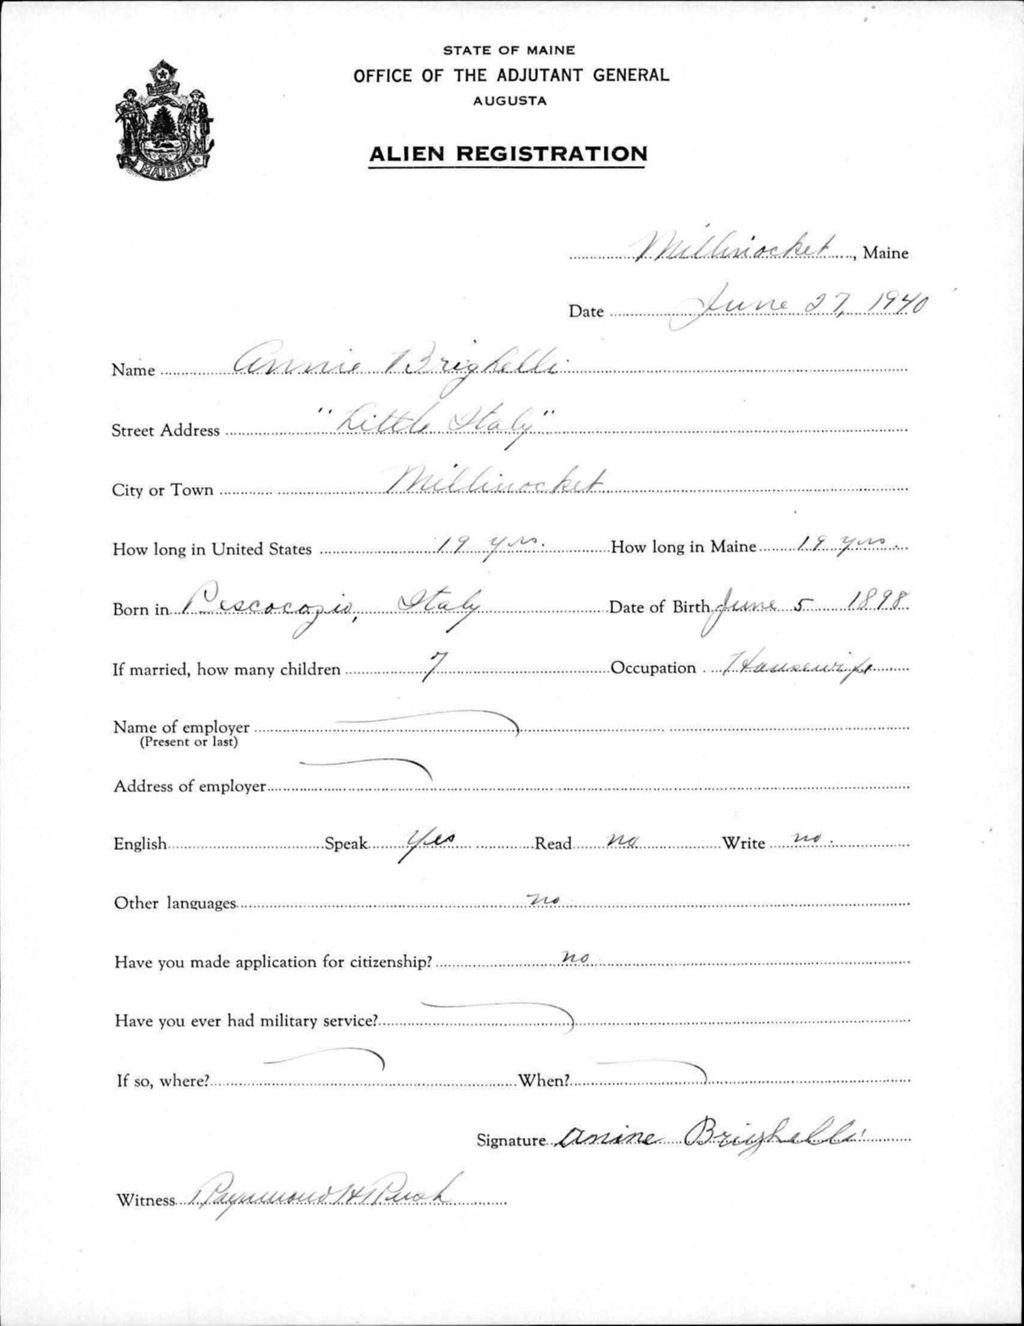 STATE OF MAINE
OFFICE OF THE ADJUTANT GENERAL
AUGUSTA
ALIEN REGISTRATION
MAINE
Millinocket, Maine
Date June 27, 1940
Name Annie Brighelli
Street Address "Little Italy"
City or Town Millinocket
How long in United States 19 yrs. How long in Maine 19 yrs.
Born in Pescocozio, Italy Date of Birth June 5 1898
If married, how many children 7 Occupation Housewife
Name of employer
(Present or last)
Address of employer
English Speak Yes Read no Write no.
Other languages no
Have you made application for citizenship? no
Have you ever had military service?
If so, where? When?
Signature Annine Brighelli
Witness Raymond H Rush